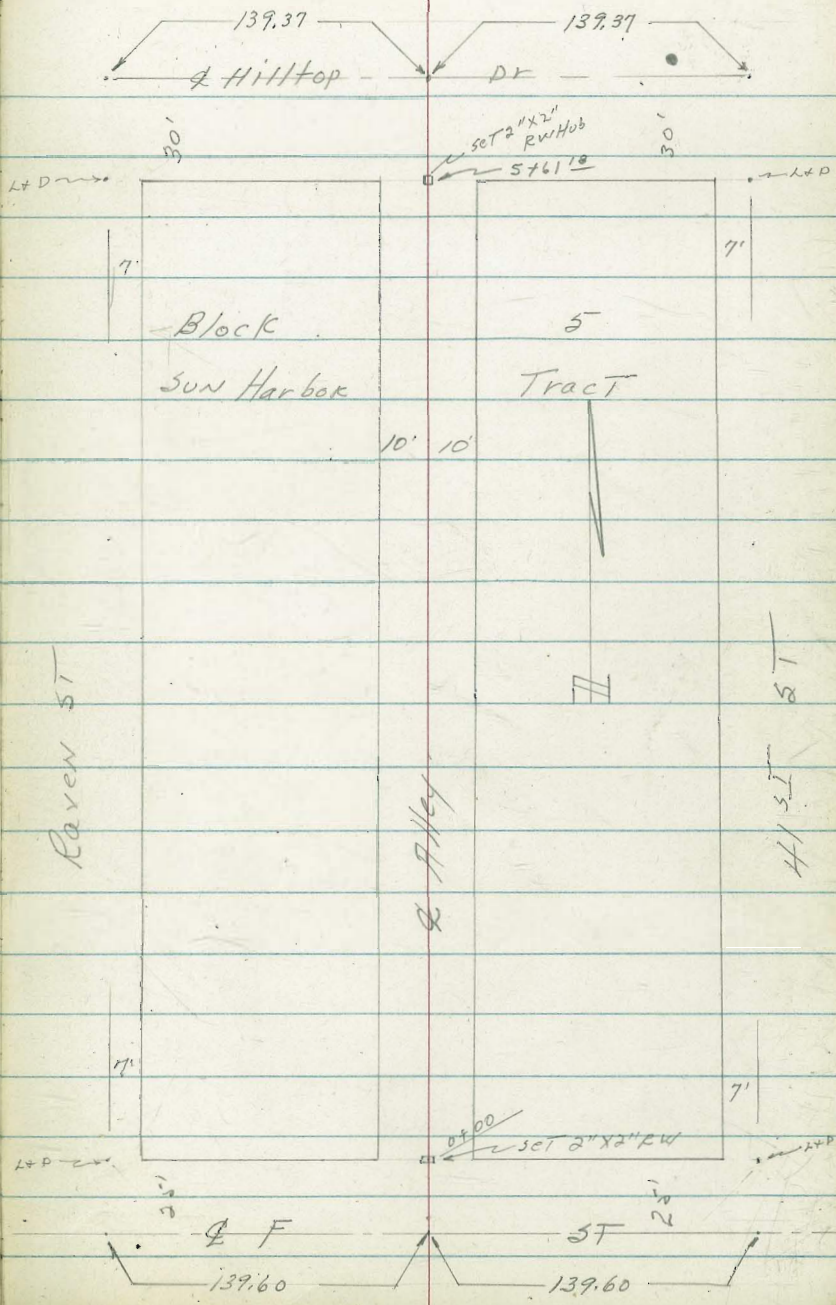 139.37 139.37
℄ Hilltop Dr
30' SET 2"X2" RW Hub 30'
L+D 5+61 18 L+D
7' 7'
Block 5
SUN Harbor Tract
10' 10'
N
Raven ST
℄ Alley
41 ST ST
7' 7'
0+00
L+D SET 2"X2" RW L+D
25' 25'
℄ F ST
139.60 139.60